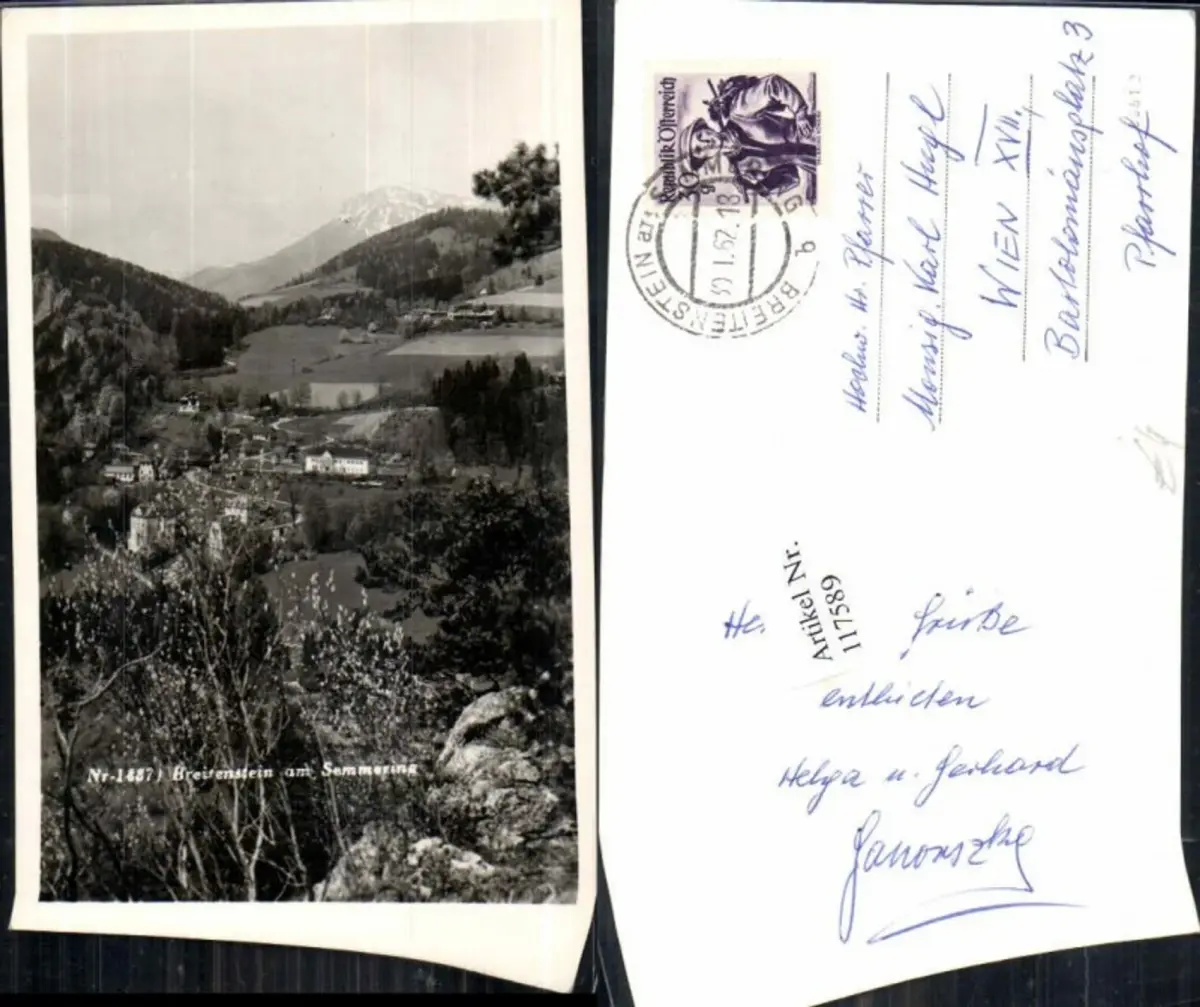 Nr-1487) Breitenstein am Semmering
Republik Österreich
30 g
BREITENSTEIN am
30.I.62.18
b BREITENSTEIN
Hochw. Hr. Pfarrer
Monsig. Karl Hugl
WIEN XVII,
Bartolomäusplatz 3
Pfarrhof
Artikel Nr.
117589
He. Grüße
entbieten
Helga u. Gerhard